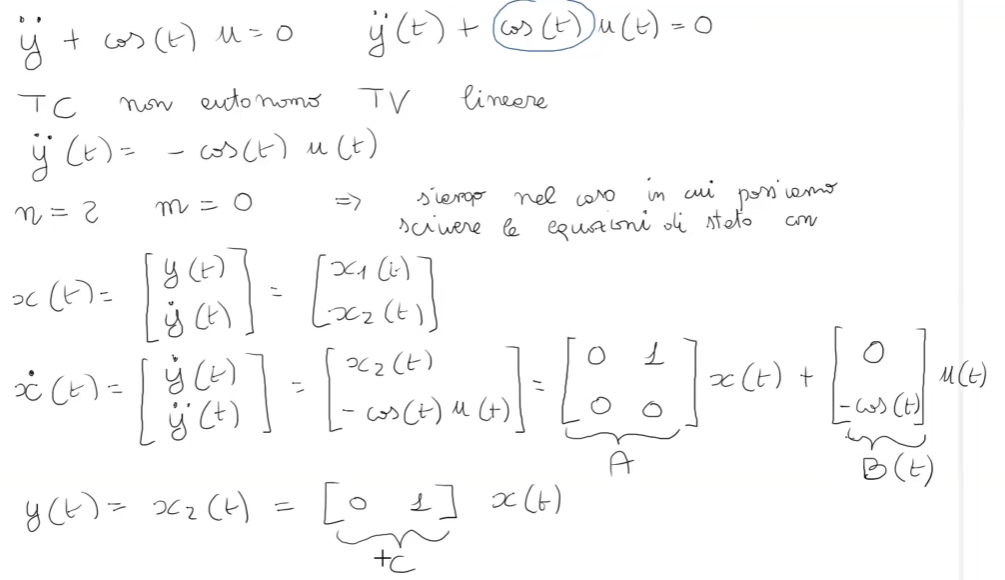 ÿ + cos(t) u = 0    ÿ(t) + cos(t) u(t) = 0
TC non autonomo TV lineare
ÿ(t) = - cos(t) u(t)
n = 2    m = 0    => siamo nel caso in cui possiamo
scrivere le equazioni di stato con
x(t) = [y(t) ; ẏ(t)] = [x1(t) ; x2(t)]
ẋ(t) = [ẏ(t) ; ÿ(t)] = [x2(t) ; - cos(t) u(t)] = [0 1 ; 0 0] x(t) + [0 ; -cos(t)] u(t)
A    B(t)
y(t) = x2(t) = [0 1] x(t)
+C